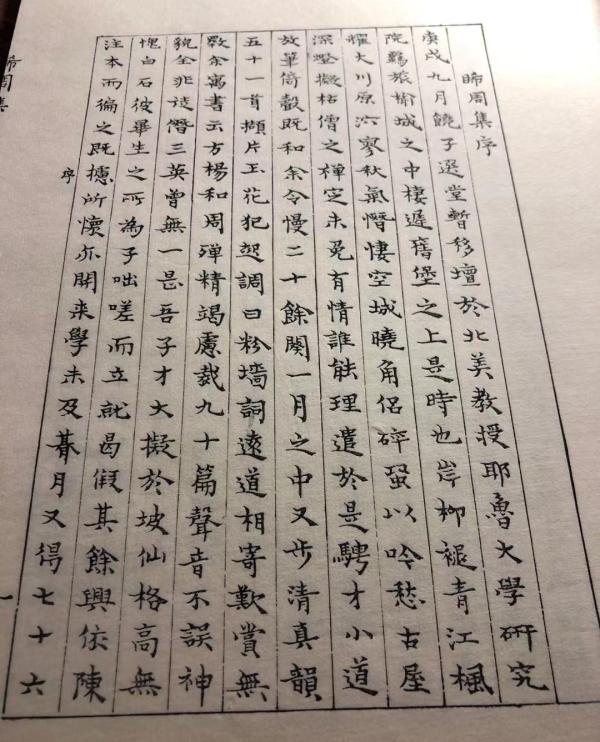 晞周集序
庚戌九月饒子選堂暫移壇於北美教授耶魯大學研究
院羈旅榆城之中棲遲舊堡之上是時也岸柳褪青江楓
耀火川原泬寥秋氣憯悽空城曉角侶碎蛩以吟愁古屋
深燈擬枯僧之禪定未免有情誰能理遣於是騁才小道
放筆倚聲既和余令慢二十餘闋一月之中又步清真韻
五十一首擷片玉花犯起調曰粉墻詞遠道相寄歎賞無
斁余寓書云方楊和周殫精竭慮裁九十篇聲音不誤神
貌全非僭三英曾無一是吾子才大擬於坡仙格高無
愧白石彼畢生之所為子咄嗟而立就曷假其餘興依陳
注本而徧之既攄所懷亦開来學未及朞月又得七十六
晞周集
序
一